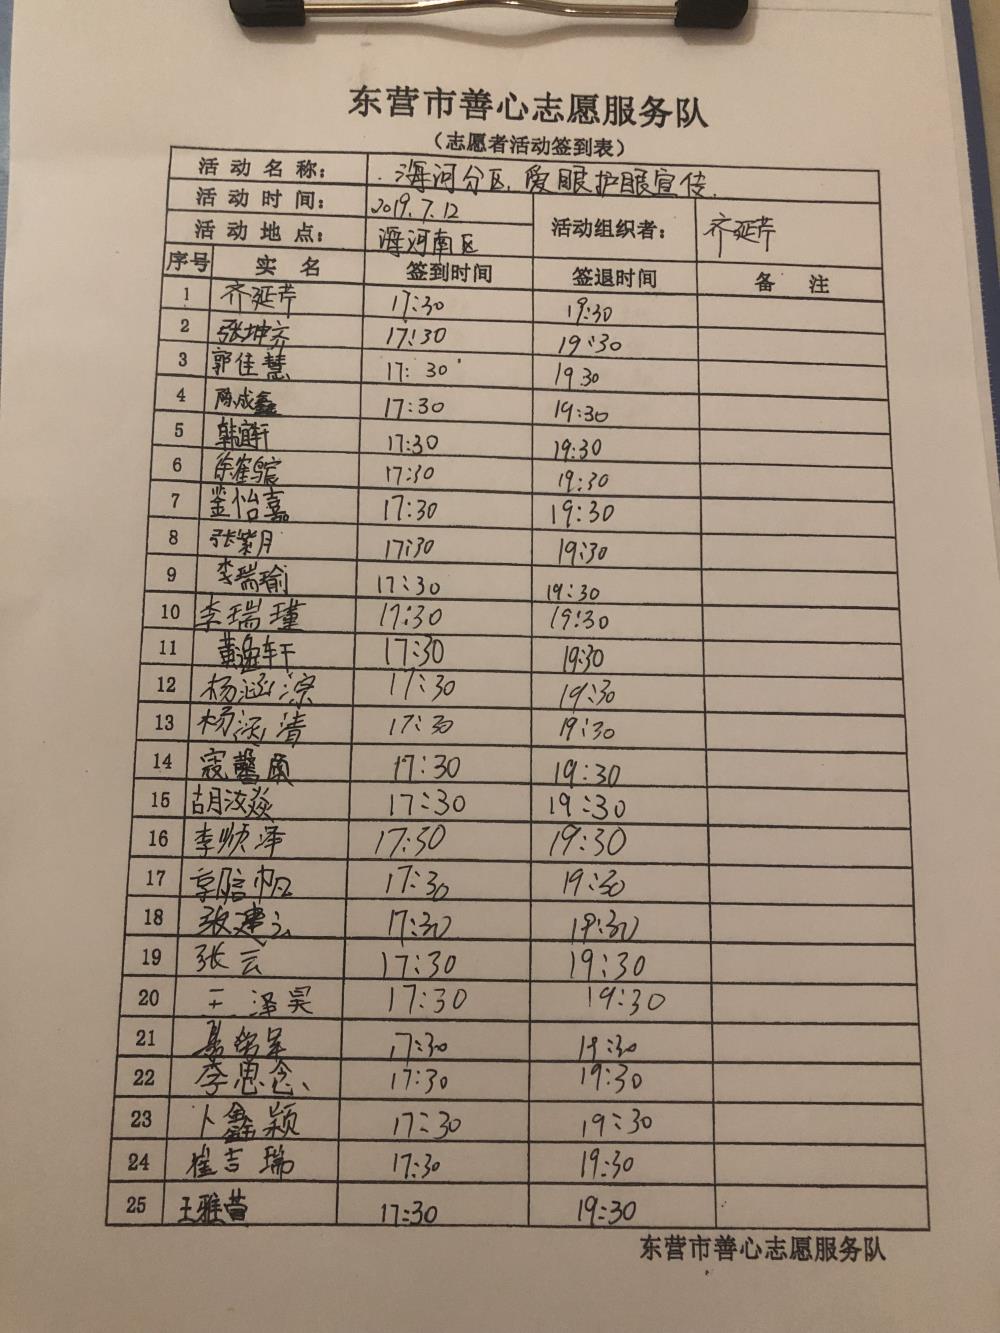 东营市善心志愿服务队
（志愿者活动签到表）
活动名称： 海河分区爱眼护眼宣传
活动时间： 2019.7.12 活动组织者： 齐延芹
活动地点： 海河南区
序号 实名 签到时间 签退时间 备注
1 齐延芹 17:30 19:30
2 张坤齐 17:30 19:30
3 郭佳慧 17:30 19 30
4 成鑫 17:30 19:30
5 韩宜轩 17:30 19:30
6 徐 17:30 19:30
7 怡嘉 17:30 19:30
8 张紫月 17:30 19:30
9 李瑞瑜 17:30 19:30
10 李瑞瑾 17:30 19:30
11 黄逸轩 17:30 19:30
12 杨涵淙 17:30 19:30
13 杨涵清 17:30 19:30
14 寇馨 17:30 19:30
15 胡汝焱 17:30 19:30
16 李帅泽 17:30 19:30
17 17:30 19:30
18 张建云 17:30 19:30
19 张云 17:30 19:30
20 王泽昊 17:30 19:30
21 17:30 19:30
22 李思念 17:30 19:30
23 卜鑫颖 17:30 19:30
24 崔吉瑞 17:30 19:30
25 王雅萱 17:30 19:30
东营市善心志愿服务队